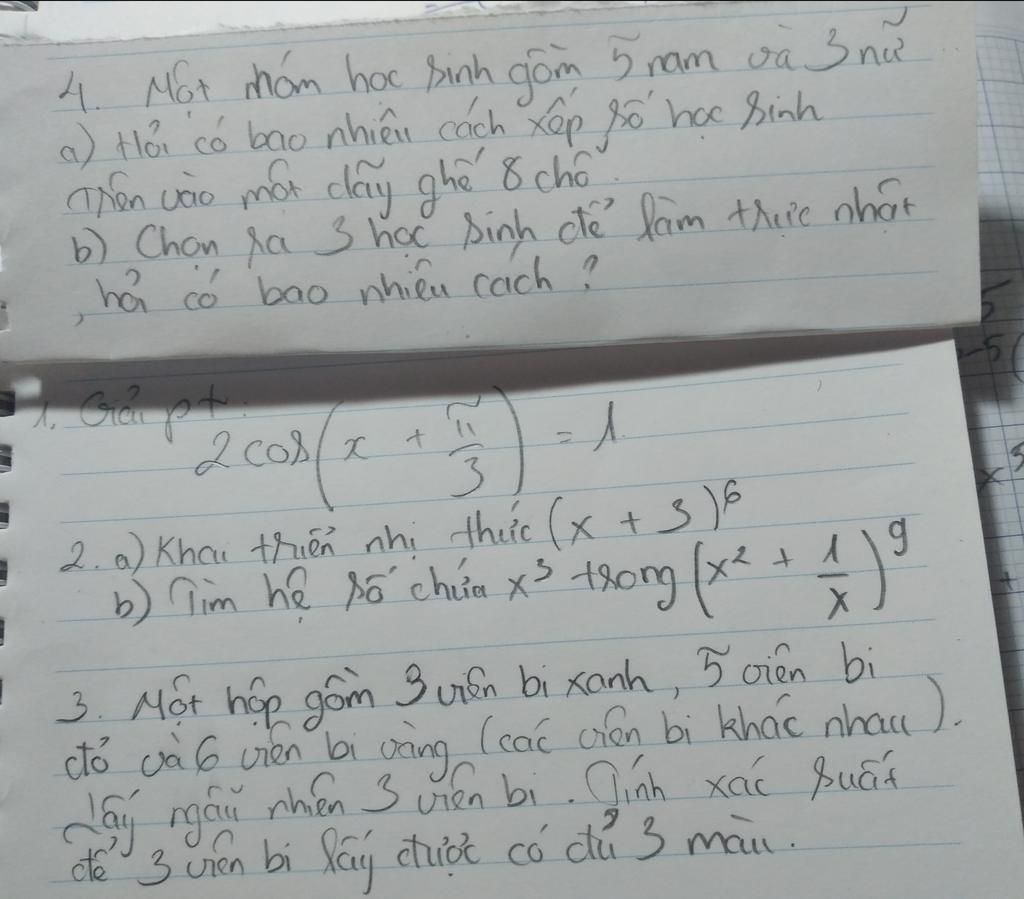 4. Một nhóm học sinh gồm 5 nam và 3 nữ
a) Hỏi có bao nhiêu cách xếp số học sinh
trên vào một dãy ghế 8 chỗ.
b) Chọn ra 3 học sinh để làm trực nhật
, hỏi có bao nhiêu cách ?
1. Giải pt:
2cos(x + π/3) = 1
2. a) Khai triển nhị thức (x + 3)^6
b) Tìm hệ số chứa x^3 trong (x^2 + 1/x)^9
3. Một hộp gồm 3 viên bi xanh, 5 viên bi
đỏ và 6 viên bi vàng (các viên bi khác nhau).
Lấy ngẫu nhiên 3 viên bi. Tính xác suất
để 3 viên bi lấy được có đủ 3 màu.